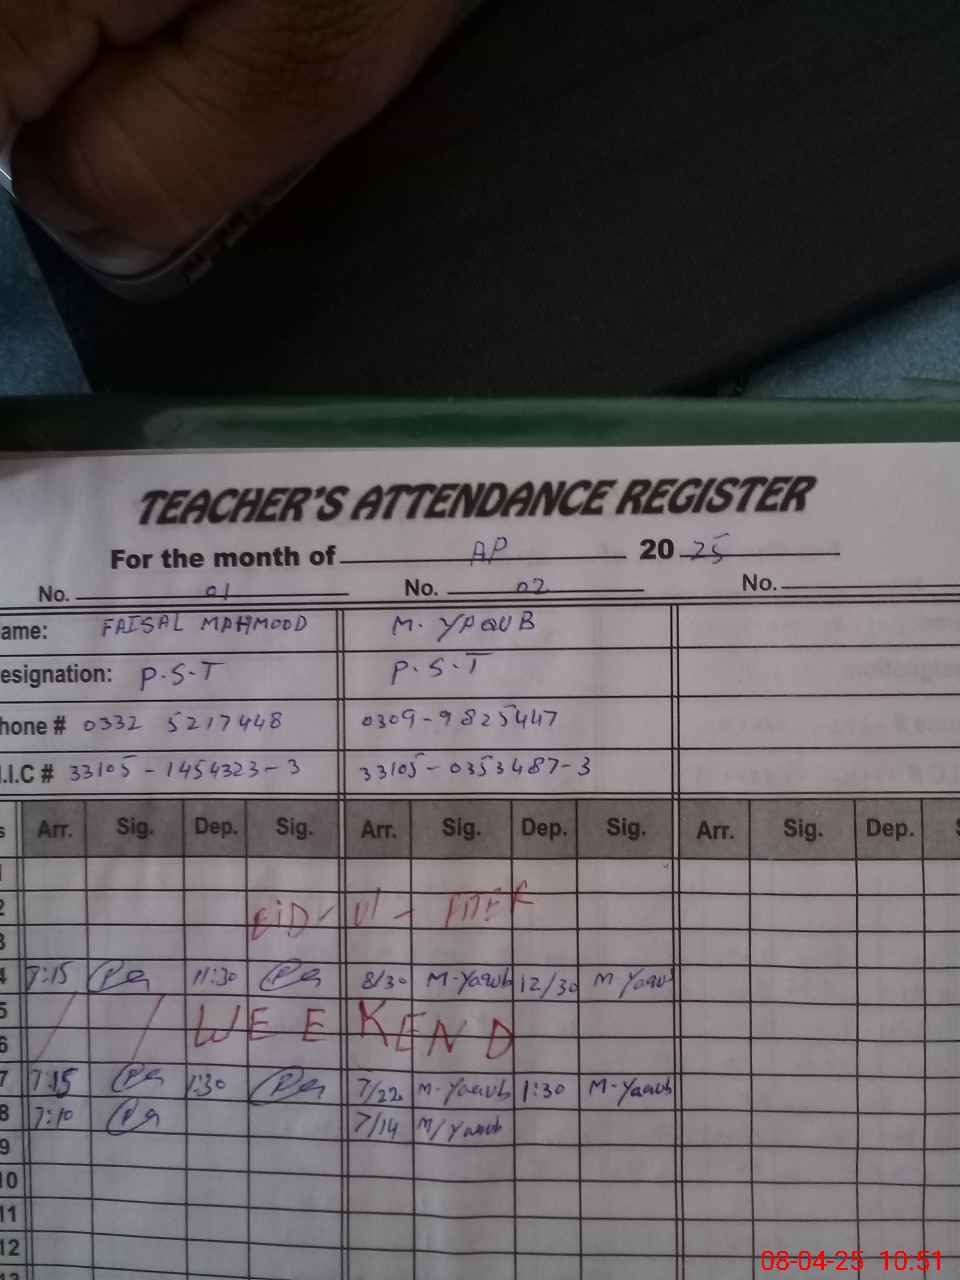 TEACHER'S ATTENDANCE REGISTER
For the month of AP 20 25
No. 01 No. 02 No.
ame: FAISAL MAHMOOD M. YAQUB
esignation: P.S.T P.S.T
hone # 0332 5217448 0309-9825447
.I.C # 33105-1454323-3 33105-0353487-3
s Arr. Sig. Dep. Sig. Arr. Sig. Dep. Sig. Arr. Sig. Dep. S
1
2 EID-Ul-FITER
3
4 7:15 11:30 8/30 M-Yaqub 12/30 M-Yaqu
5 WEEKEND
6
7 7:15 1:30 7/22 M-Yaqub 1:30 M-Yaqub
8 7:10 7/14 M/Yaqub
9
10
11
12
13
08-04-25 10:51